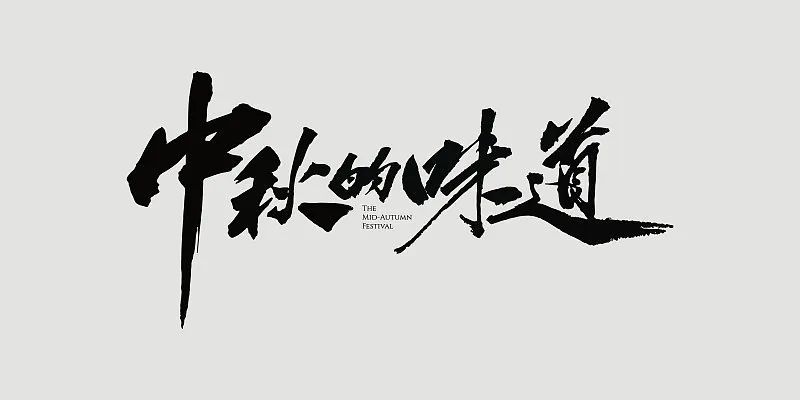 中秋的味道
The
Mid-Autumn
Festival